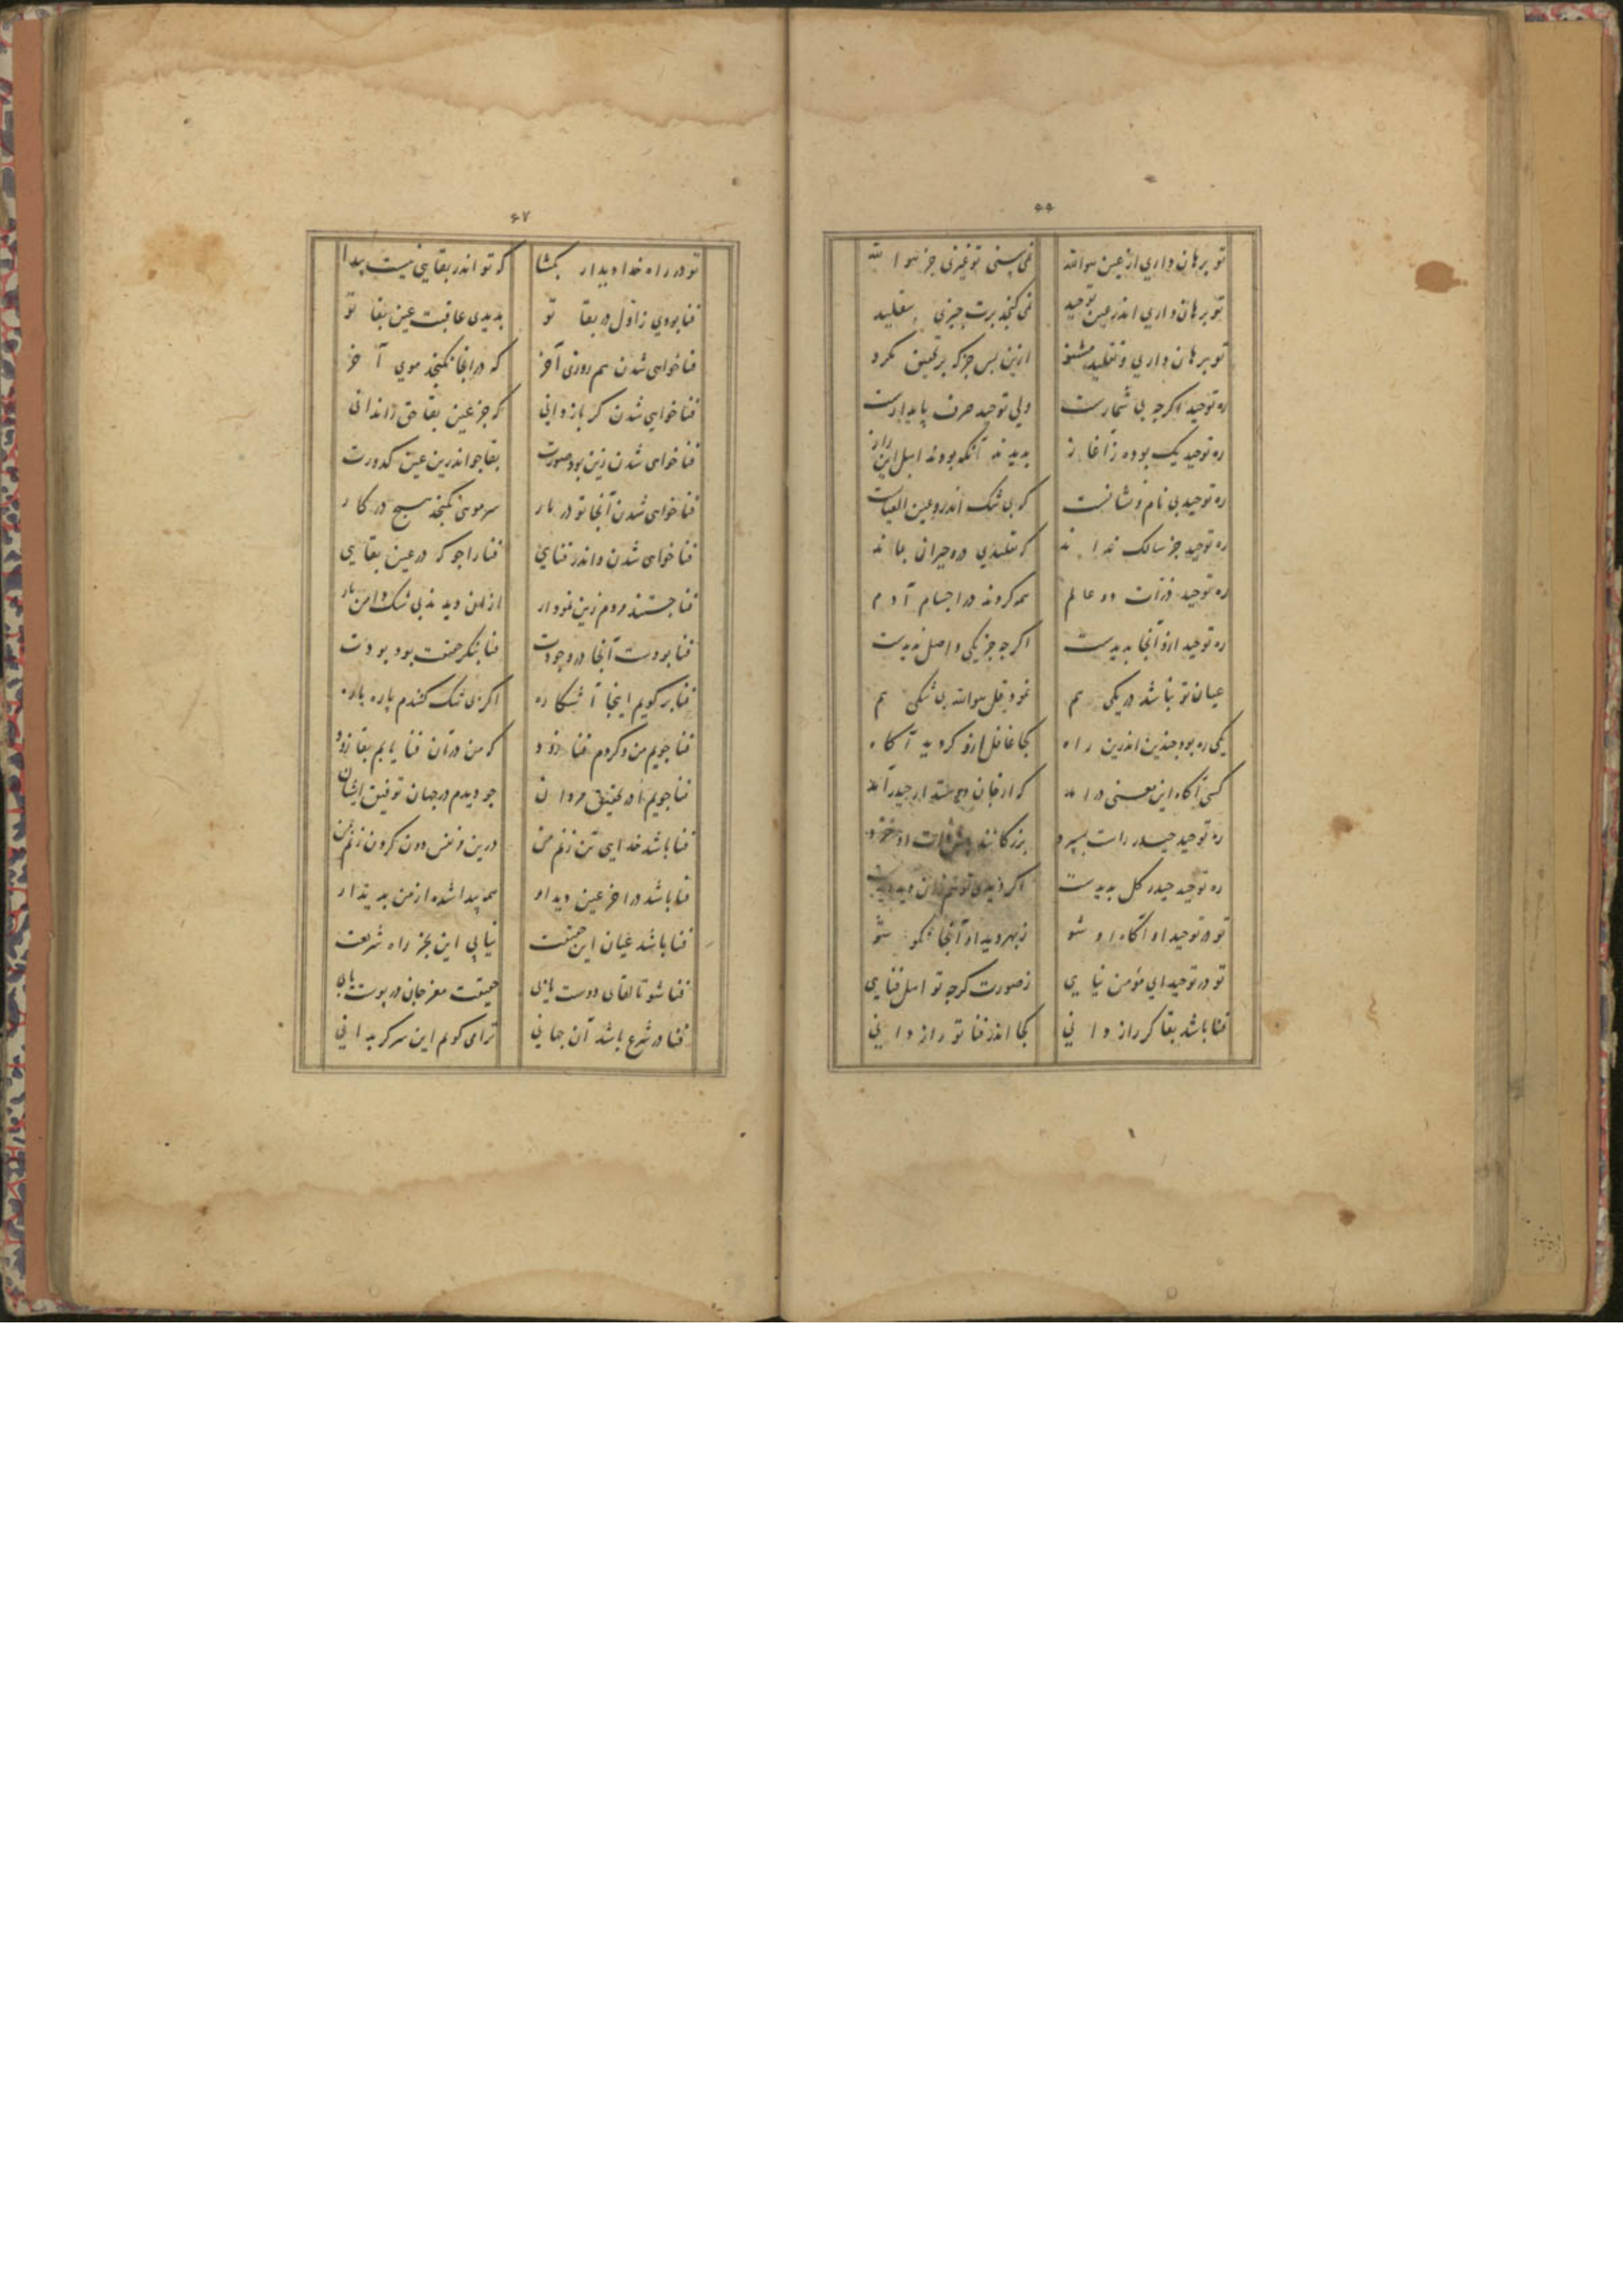 ۶۶
تو برهان داری از عین هوالله نمی بینی تو غیری جز هوا لله
تو برهان داری اندر عین توحید نمی کنجد برت چیزی بتقلید
تو برهان داری و تقلید مشنو ازین پس جز که بر تحقیق مکرو
ره توحید اکرچه بی شمارست ولی توحید صرف پایدارست
ره توحید یک بوده ز آغاز بدیدند آنکه بودند اهل این راز
ره توحید بی نام و نشانست که بی شک اندرو عین العیانست
ره توحید جز سالک نداند که تقلیدی درو حیران بماند
ره توحید ذرات دو عالم همه کردند در اجسام آدم
ره توحید ازو آنجا بدیدست اکرچه جز یکی واصل ندیدست
عیان تو بباشد در یکی هم نمود قل هوالله بی شکی هم
یکی ره بود چندین اندرین راه کجا غافل ازو کردید آکاه
کسی آکاه این معنی در آمد که از جان دوستدار حیدر آمد
ره توحید حیدر راست بسپرد بزرکانند پیش ذات او خرد
ره توحید حیدر کل بدیدست اکر دیدی تو هم زان دید دیدست
تو در توحید او آکاه او شو ز بهر دیدار آنجا نکو شو
تو در توحید ای مؤمن نیایی ز صورت کرچه تو اهل فنایی
فنا باشد بقا کر راز دانی کجا اندر فنا تو راز دانی
۶۷
تو در راه خدا دیدار بکشا که تو اندر بقایی نیست پیدا
فنا بودی ز اول در بقا تو بدیدی عاقبت عین بقا تو
فنا خواهی شدن هم روزی آخر که در انجا نکنجد موی آخر
فنا خواهی شدن کر باز دانی که جز عین بقا حق را ندانی
فنا خواهی شدن زین بود صورت بقا جو اندرین عین کدورت
فنا خواهی شدن آنجا تو در یار سر مویی نکنجد هیچ در کار
فنا خواهی شدن و اندر فنایی فنا را جو که در عین بقایی
فنا جستند مردم زین نمودار از ان دیدند بی شک دامن یار
فنا بودست آنجا در وجودت فنا بنکر حقیقت بود بودت
فنا بر کویم اینجا آشکاره اکر بی شک کنندم پاره پاره
فنا جویم من و کردم فنا زود که من در آن فنا یابم بقا زود
فنا جویم در تحقیق مردان چو دیدم در جهان توفیق ایشان
فنا باشد خدایی تن زنم من درین و نفس دون کردن زنم من
فنا باشد در اخر عین دیدار همه پیدا شده از من پدیدار
فنا باشد عیان این حقیقت نیابی این بجز راه شریعت
فنا شو تا لقای دوست یابی حقیقت مغز جان در پوست یابی
فنا در شرع باشد آن جهانی ترا می کویم این سر کر بدانی